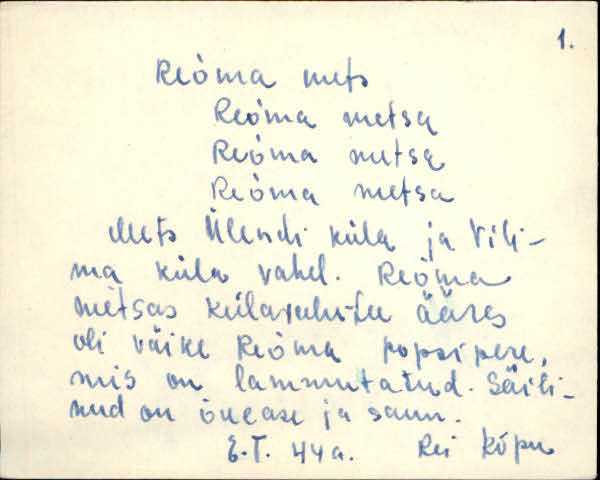 1.
Reõma mets
Reõma metsa
Reõma metsa
Reõma metsa
Mets Ülendi küla ja Vili-
ma küla vahel. Reõma
metsas külavahetee ääres
oli väike Reõma popsipere,
mis on lammutatud. Säili-
nud on õuease ja saun.
E.T. 44 a. Rei Kõpu